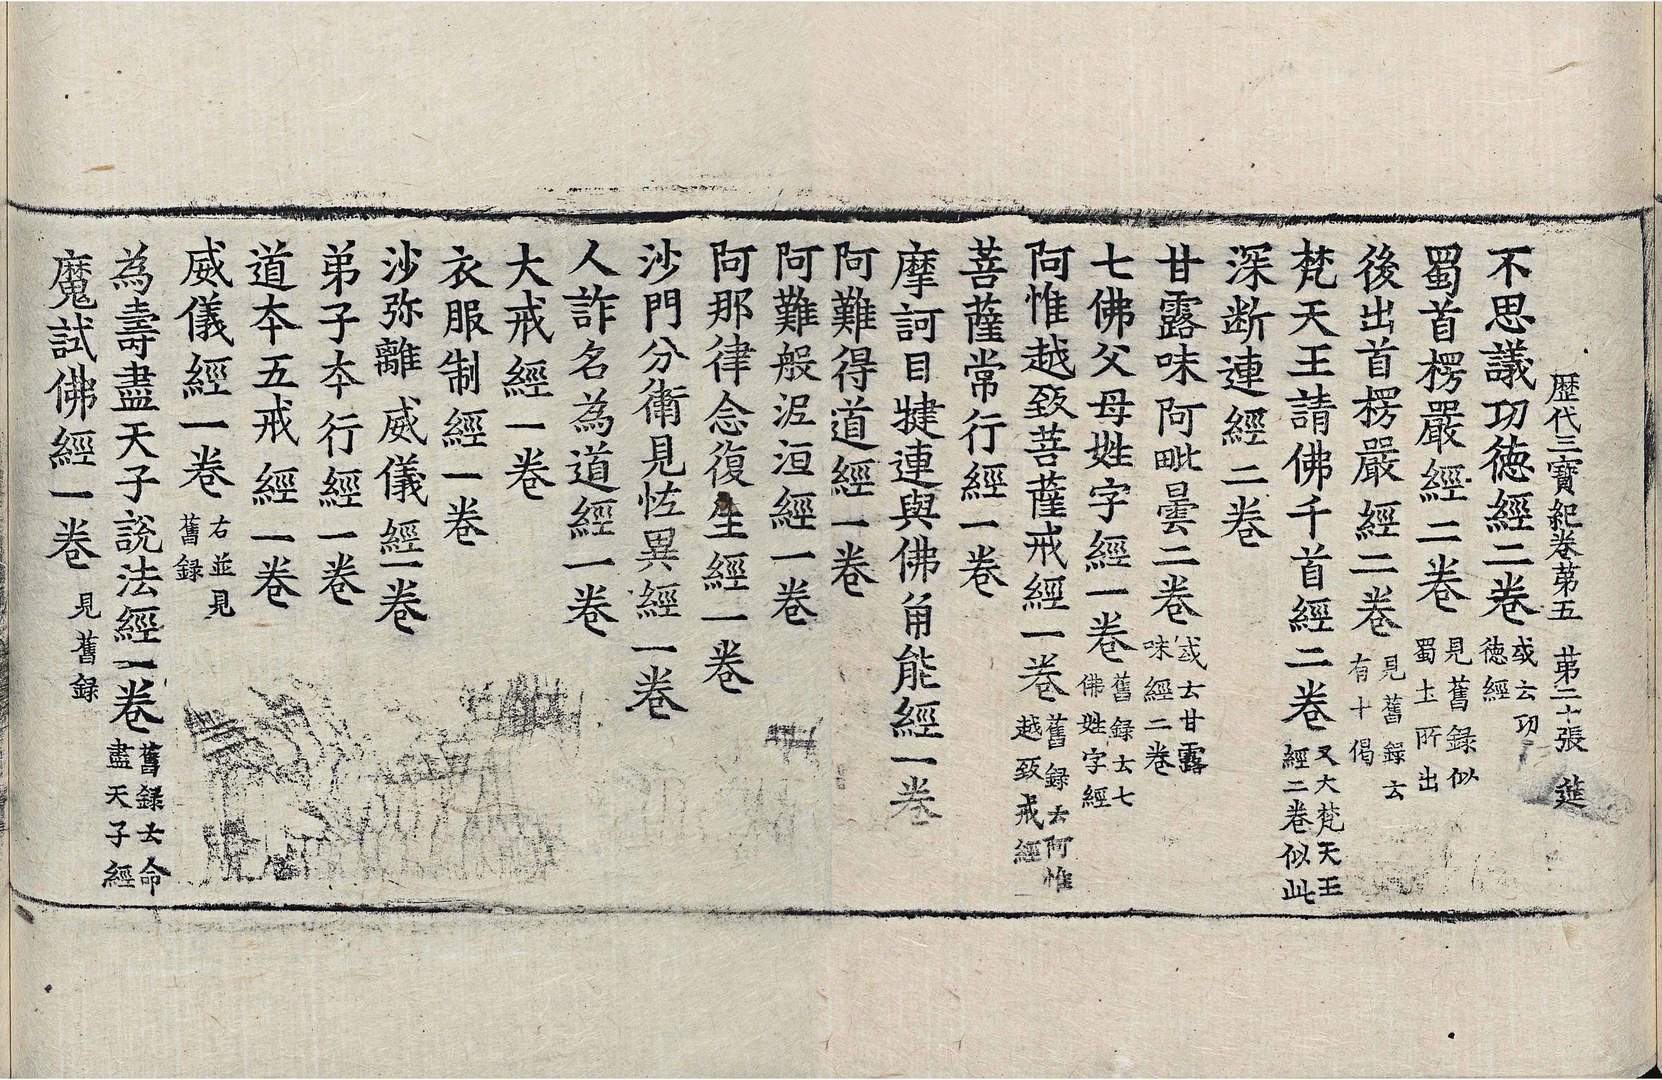 歷代三寶紀卷第五 苐二十張 筵
不思議功德經二卷 或云功德經
蜀首楞嚴經二卷 見舊録似蜀土所出
後出首楞嚴經二卷 見舊録云有十偈
梵天王請佛千首經二卷 又大梵天王經二卷似此
深断連經二卷
甘露味阿毗曇二卷 或云甘露味經二卷
七佛父母姓字經一卷 舊録云七佛姓字經
阿惟越致菩薩戒經一卷 舊録云阿惟越致戒經
菩薩常行經一卷
摩訶目揵連與佛角能經一卷
阿難得道經一卷
阿難般泥洹經一卷
阿那律念復生經一卷
沙門分衛見恠異經一卷
人詐名為道經一卷
大戒經一卷
衣服制經一卷
沙弥離威儀經一卷
弟子本行經一卷
道本五戒經一卷
威儀經一卷 右並見舊録
為壽盡天子説法經一卷 舊録云命盡天子經
魔試佛經一卷 見舊録